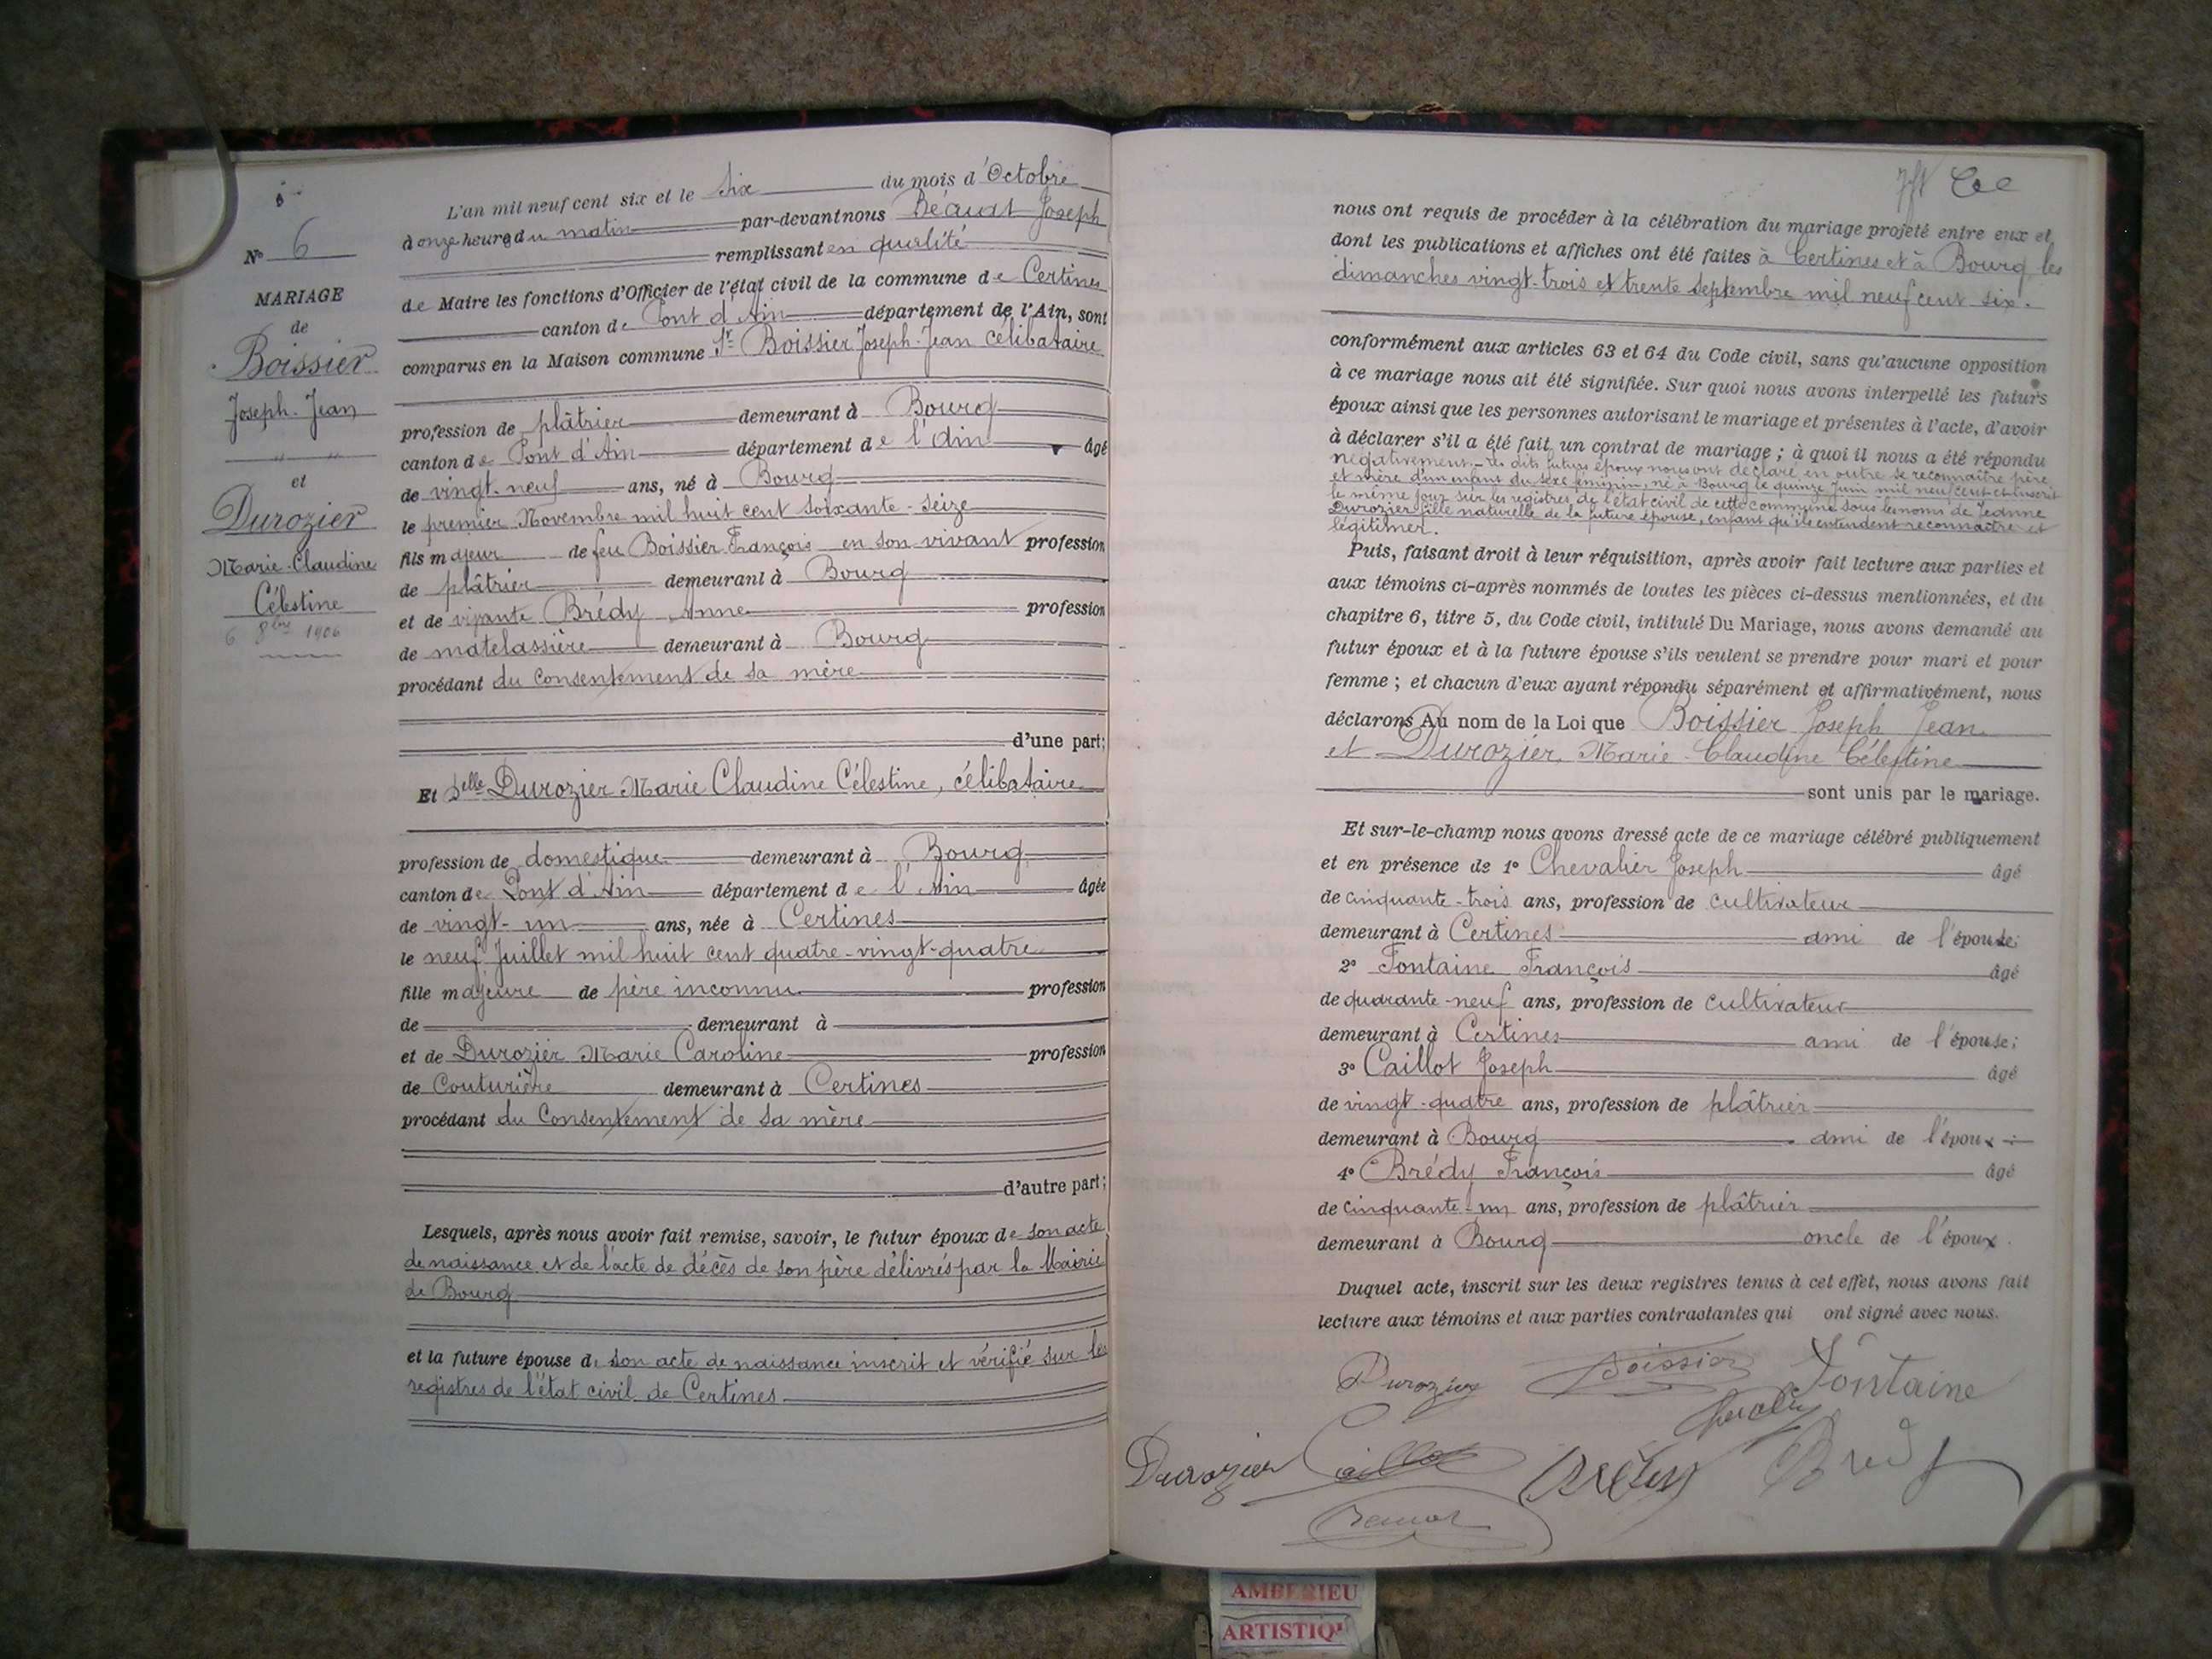 N° 6
MARIAGE
de
Boissier
Joseph-Jean
et
Durozier
Marie-Claudine
Célestine
6 8bre 1906
L'an mil neuf cent six et le six du mois d'Octobre
à onze heures du matin par-devant nous Béavat Joseph
remplissant en qualité
de Maire les fonctions d'Officier de l'état civil de la commune de Certines
canton de Pont d'Ain département de l'Ain, sont
comparus en la Maison commune Sr Boissier Joseph-Jean célibataire
profession de plâtrier demeurant à Bourg
canton de Pont d'Ain département de l'Ain âgé
de vingt-neuf ans, né à Bourg
le premier Novembre mil huit cent soixante-seize
fils majeur de feu Boissier François en son vivant profession
de plâtrier demeurant à Bourg
et de vivante Brédy Anne profession
de matelassière demeurant à Bourg
procédant du consentement de sa mère
d'une part;
Et Delle Durozier Marie Claudine Célestine, célibataire
profession de domestique demeurant à Bourg
canton de Pont d'Ain département de l'Ain âgée
de vingt-un ans, née à Certines
le neuf Juillet mil huit cent quatre-vingt-quatre
fille majeure de père inconnu profession
de demeurant à
et de Durozier Marie Caroline profession
de Couturière demeurant à Certines
procédant du Consentement de sa mère
d'autre part;
Lesquels, après nous avoir fait remise, savoir, le futur époux de son acte
de naissance et de l'acte de décès de son père délivrés par la Mairie
de Bourg
et la future épouse de son acte de naissance inscrit et vérifié sur les
registres de l'état civil de Certines
nous ont requis de procéder à la célébration du mariage projeté entre eux et
dont les publications et affiches ont été faites à Certines et à Bourg les
dimanches vingt-trois et trente septembre mil neuf cent six.
conformément aux articles 63 et 64 du Code civil, sans qu'aucune opposition
à ce mariage nous ait été signifiée. Sur quoi nous avons interpellé les futurs
époux ainsi que les personnes autorisant le mariage et présentes à l'acte, d'avoir
à déclarer s'il a été fait un contrat de mariage ; à quoi il nous a été répondu
négativement - les dits futurs époux nous ont déclaré en outre se reconnaître père
et mère d'un enfant du sexe féminin, né à Bourg le quinze Juin mil neuf cent et inscrit
le même jour sur les registres de l'état civil de cette commune sous les noms de Jeanne
Durozier fille naturelle de la future épouse, enfant qu'ils entendent reconnaître et
légitimer.
Puis, faisant droit à leur réquisition, après avoir fait lecture aux parties et
aux témoins ci-après nommés de toutes les pièces ci-dessus mentionnées, et du
chapitre 6, titre 5, du Code civil, intitulé Du Mariage, nous avons demandé au
futur époux et à la future épouse s'ils veulent se prendre pour mari et pour
femme ; et chacun d'eux ayant répondu séparément et affirmativement, nous
déclarons Au nom de la Loi que Boissier Joseph Jean
et Durozier Marie-Claudine Célestine
sont unis par le mariage.
Et sur-le-champ nous avons dressé acte de ce mariage célébré publiquement
et en présence de 1° Chevalier Joseph âgé
de cinquante-trois ans, profession de cultivateur
demeurant à Certines ami de l'épouse;
2° Fontaine François âgé
de quarante-neuf ans, profession de cultivateur
demeurant à Certines ami de l'épouse;
3° Caillot Joseph âgé
de vingt-quatre ans, profession de plâtrier
demeurant à Bourg ami de l'époux
4° Brédy François âgé
de cinquante-un ans, profession de plâtrier
demeurant à Bourg oncle de l'époux.
Duquel acte, inscrit sur les deux registres tenus à cet effet, nous avons fait
lecture aux témoins et aux parties contractantes qui ont signé avec nous.
Durozier Boissier Fontaine
Durozier Caillot Bredy
AMBERIEU
ARTISTIQ